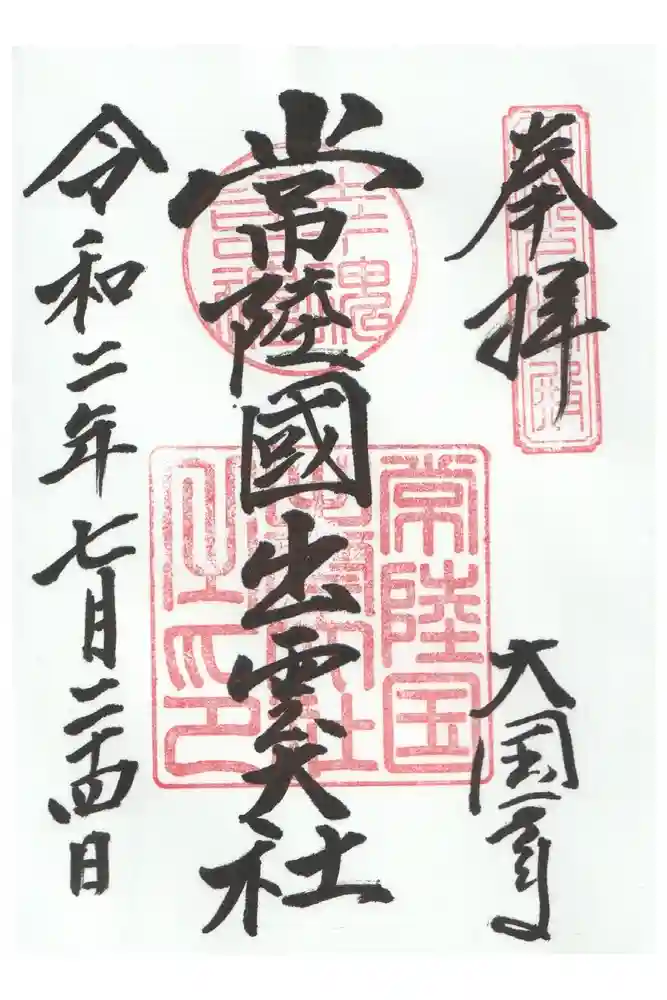 奉拝
大国
常陸國出雲大社
令和二年七月二十四日
常陸国
出雲大社
之印